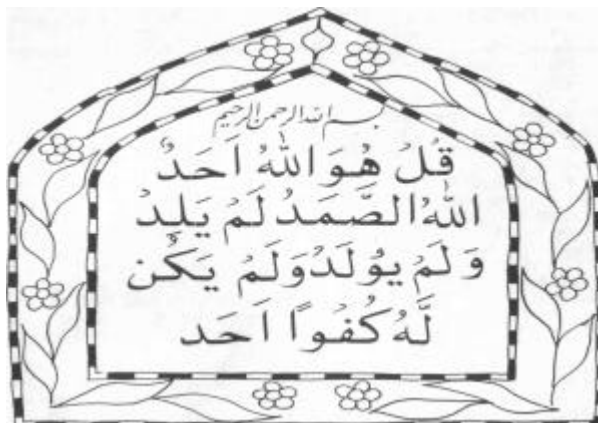 بسم الله الرحمن الرحيم
قُلْ هُوَ اللهُ اَحَدٌ
اَللهُ الصَّمَدُ لَمْ يَلِدْ
وَلَمْ يُولَدْ وَلَمْ يَكُن
لَّهُ كُفُوًا اَحَد